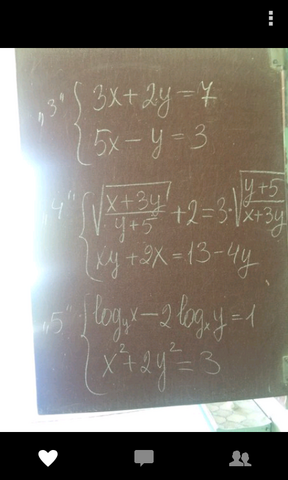 "3" { 3x + 2y = 7
5x - y = 3
"4" { √((x+3y)/(y+5)) + 2 = 3·√((y+5)/(x+3y))
xy + 2x = 13 - 4y
"5" { log_y x - 2 log_x y = 1
x² + 2y² = 3